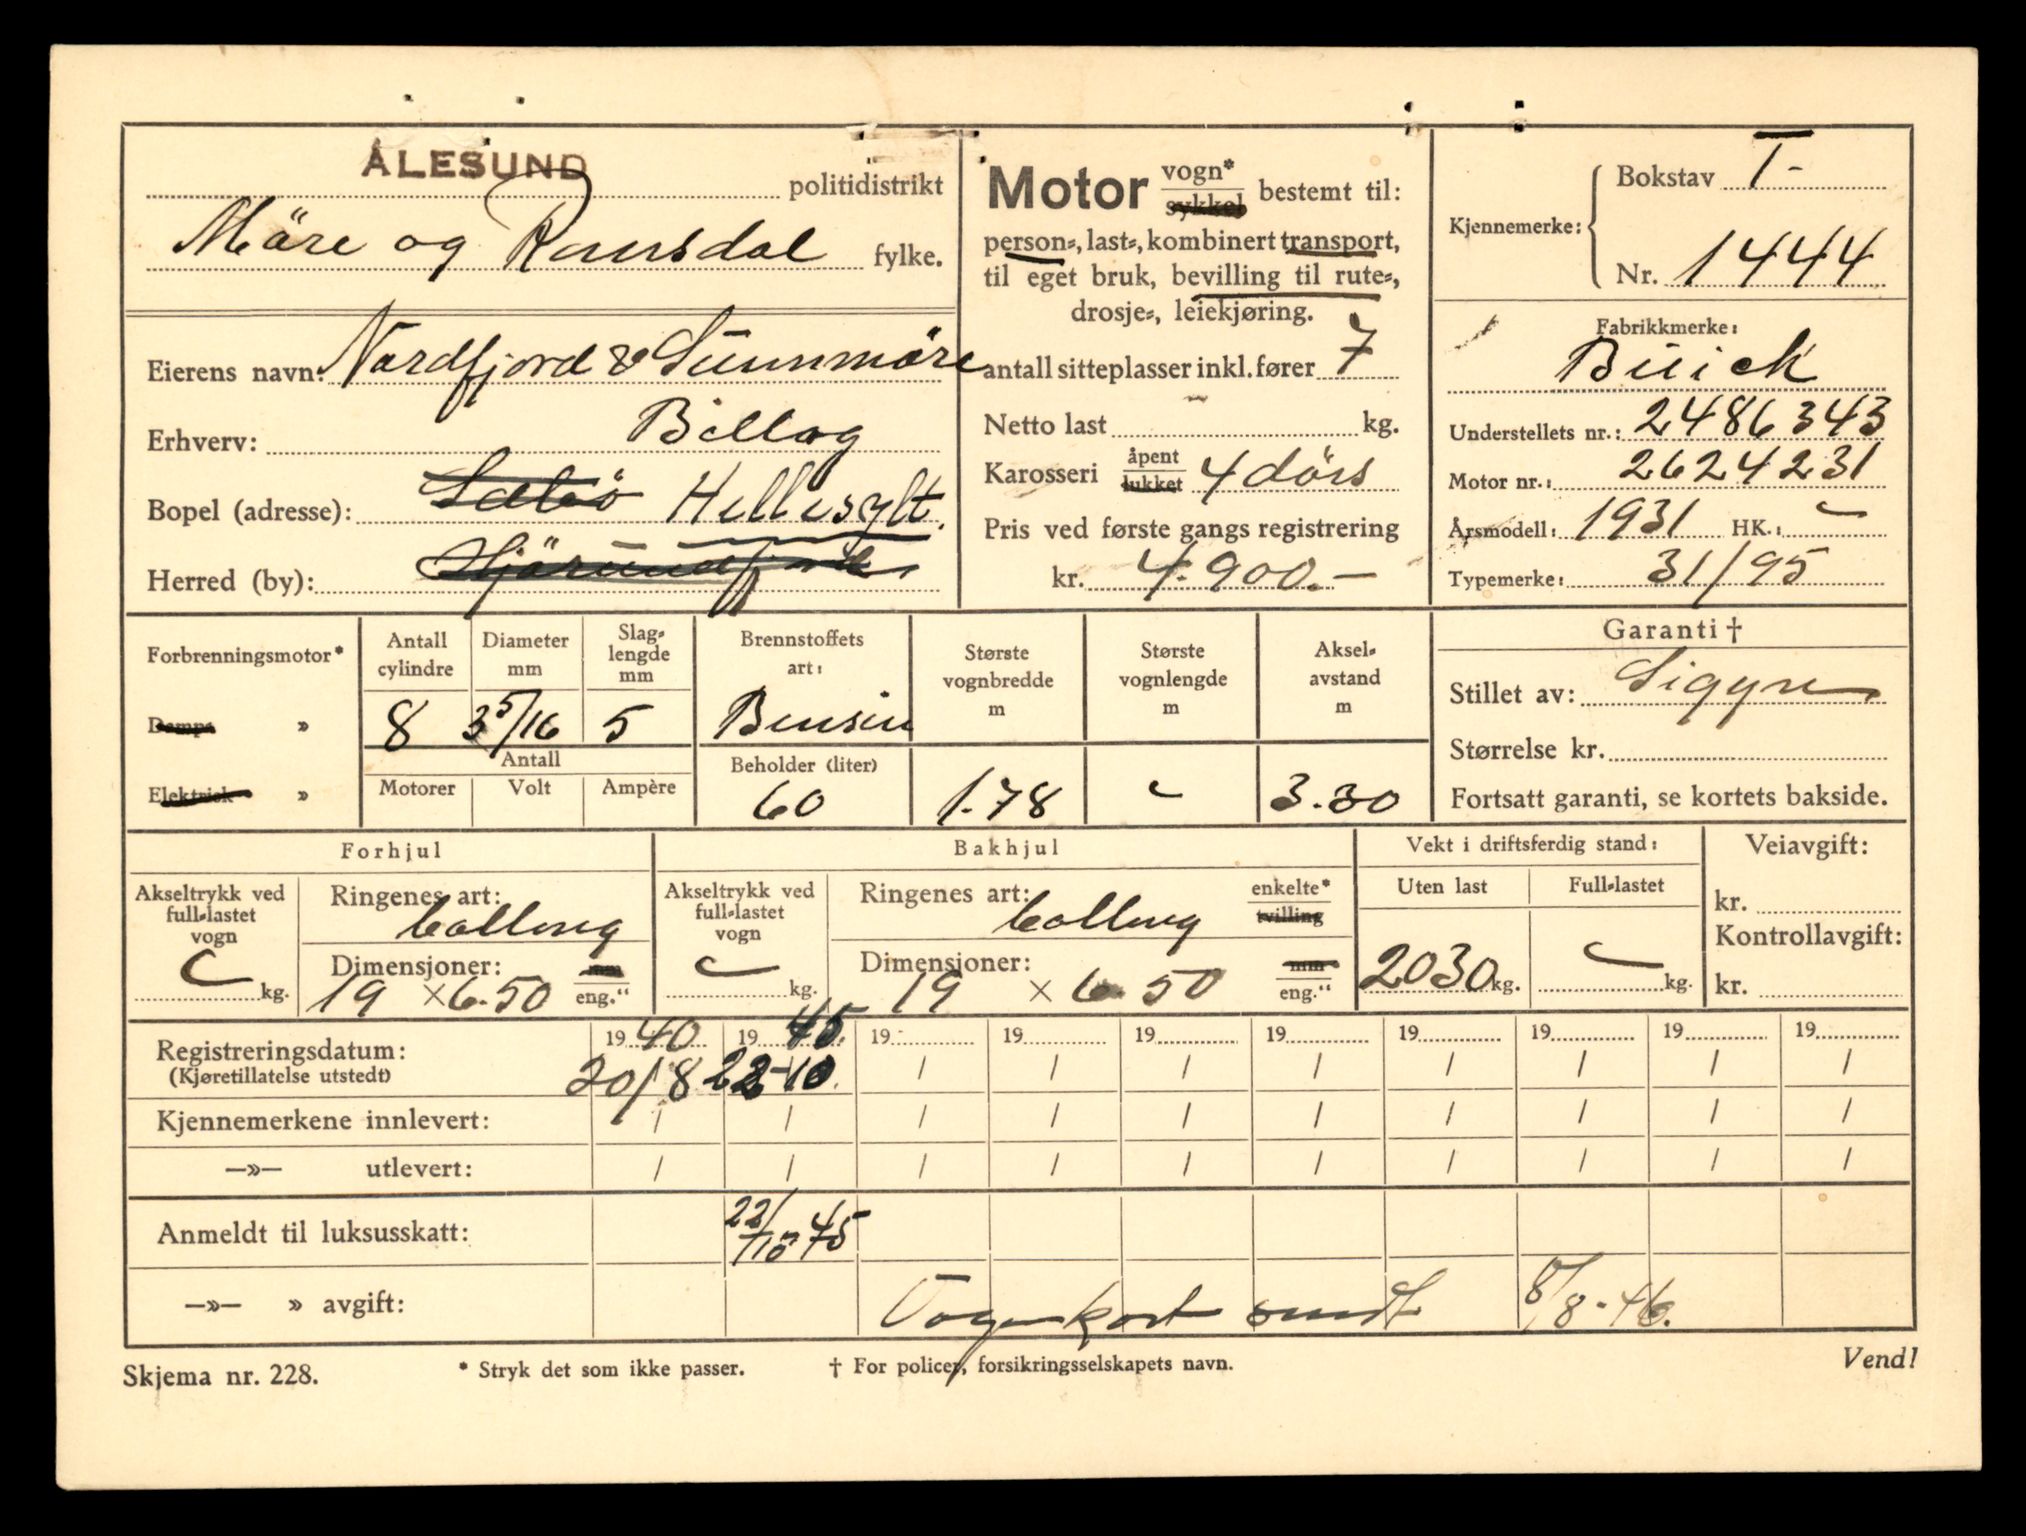 ÅLESUND politidistrikt
Möre og Romsdal fylke.
Eierens navn: Nordfjord & Sunnmöre
Erhverv: Billag
Bopel (adresse): Sæbö Hellesylt.
Herred (by): Hjörundfjord
Motor vogn* sykkel bestemt til:
person-, last-, kombinert transport,
til eget bruk, bevilling til rute-,
drosje-, leiekjøring.
antall sitteplasser inkl. fører 7
Netto last kg.
Karosseri åpent lukket 4 dörs
Pris ved første gangs registrering
kr. 4.900.—
Kjennemerke: Bokstav T-
Nr. 1444
Fabrikkmerke:
Buick
Understellets nr.: 2486343
Motor nr.: 2624231
Årsmodell: 1931 HK.:
Typemerke: 31/95
Forbrenningsmotor*
Damps »
Elektrisk »
Antall cylindre 8
Diameter mm 3 5/16
Slag-lengde mm 5
Antall
Motorer Volt Ampère
Brennstoffets art: Bensin
Beholder (liter) 60
Største vognbredde m 1.78
Største vognlengde m
Aksel-avstand m 3.30
Garanti †
Stillet av: Sigyn
Størrelse kr.
Fortsatt garanti, se kortets bakside.
Forhjul
Akseltrykk ved full-lastet vogn kg.
Ringenes art: ballong
Dimensjoner: 19 × 6.50 mm eng."
Bakhjul
Akseltrykk ved full-lastet vogn kg.
Ringenes art: ballong enkelte* tvilling
Dimensjoner: 19 × 6.50 mm eng."
Vekt i driftsferdig stand:
Uten last Full-lastet
2030 kg. kg.
Veiavgift:
kr.
Kontrollavgift:
kr.
19 40 19 45. 19 19 19 19 19 19 19 19
Registreringsdatum: 20/8 22-10. / / / / / / / /
(Kjøretillatelse utstedt)
Kjennemerkene innlevert: / / / / / / / / / /
—»— utlevert: / / / / / / / / / /
Anmeldt til luksusskatt: 22/10-45
—»— » avgift: Vognkort sendt 8/8-46.
Skjema nr. 228. * Stryk det som ikke passer. † For policer, forsikringsselskapets navn. Vend!